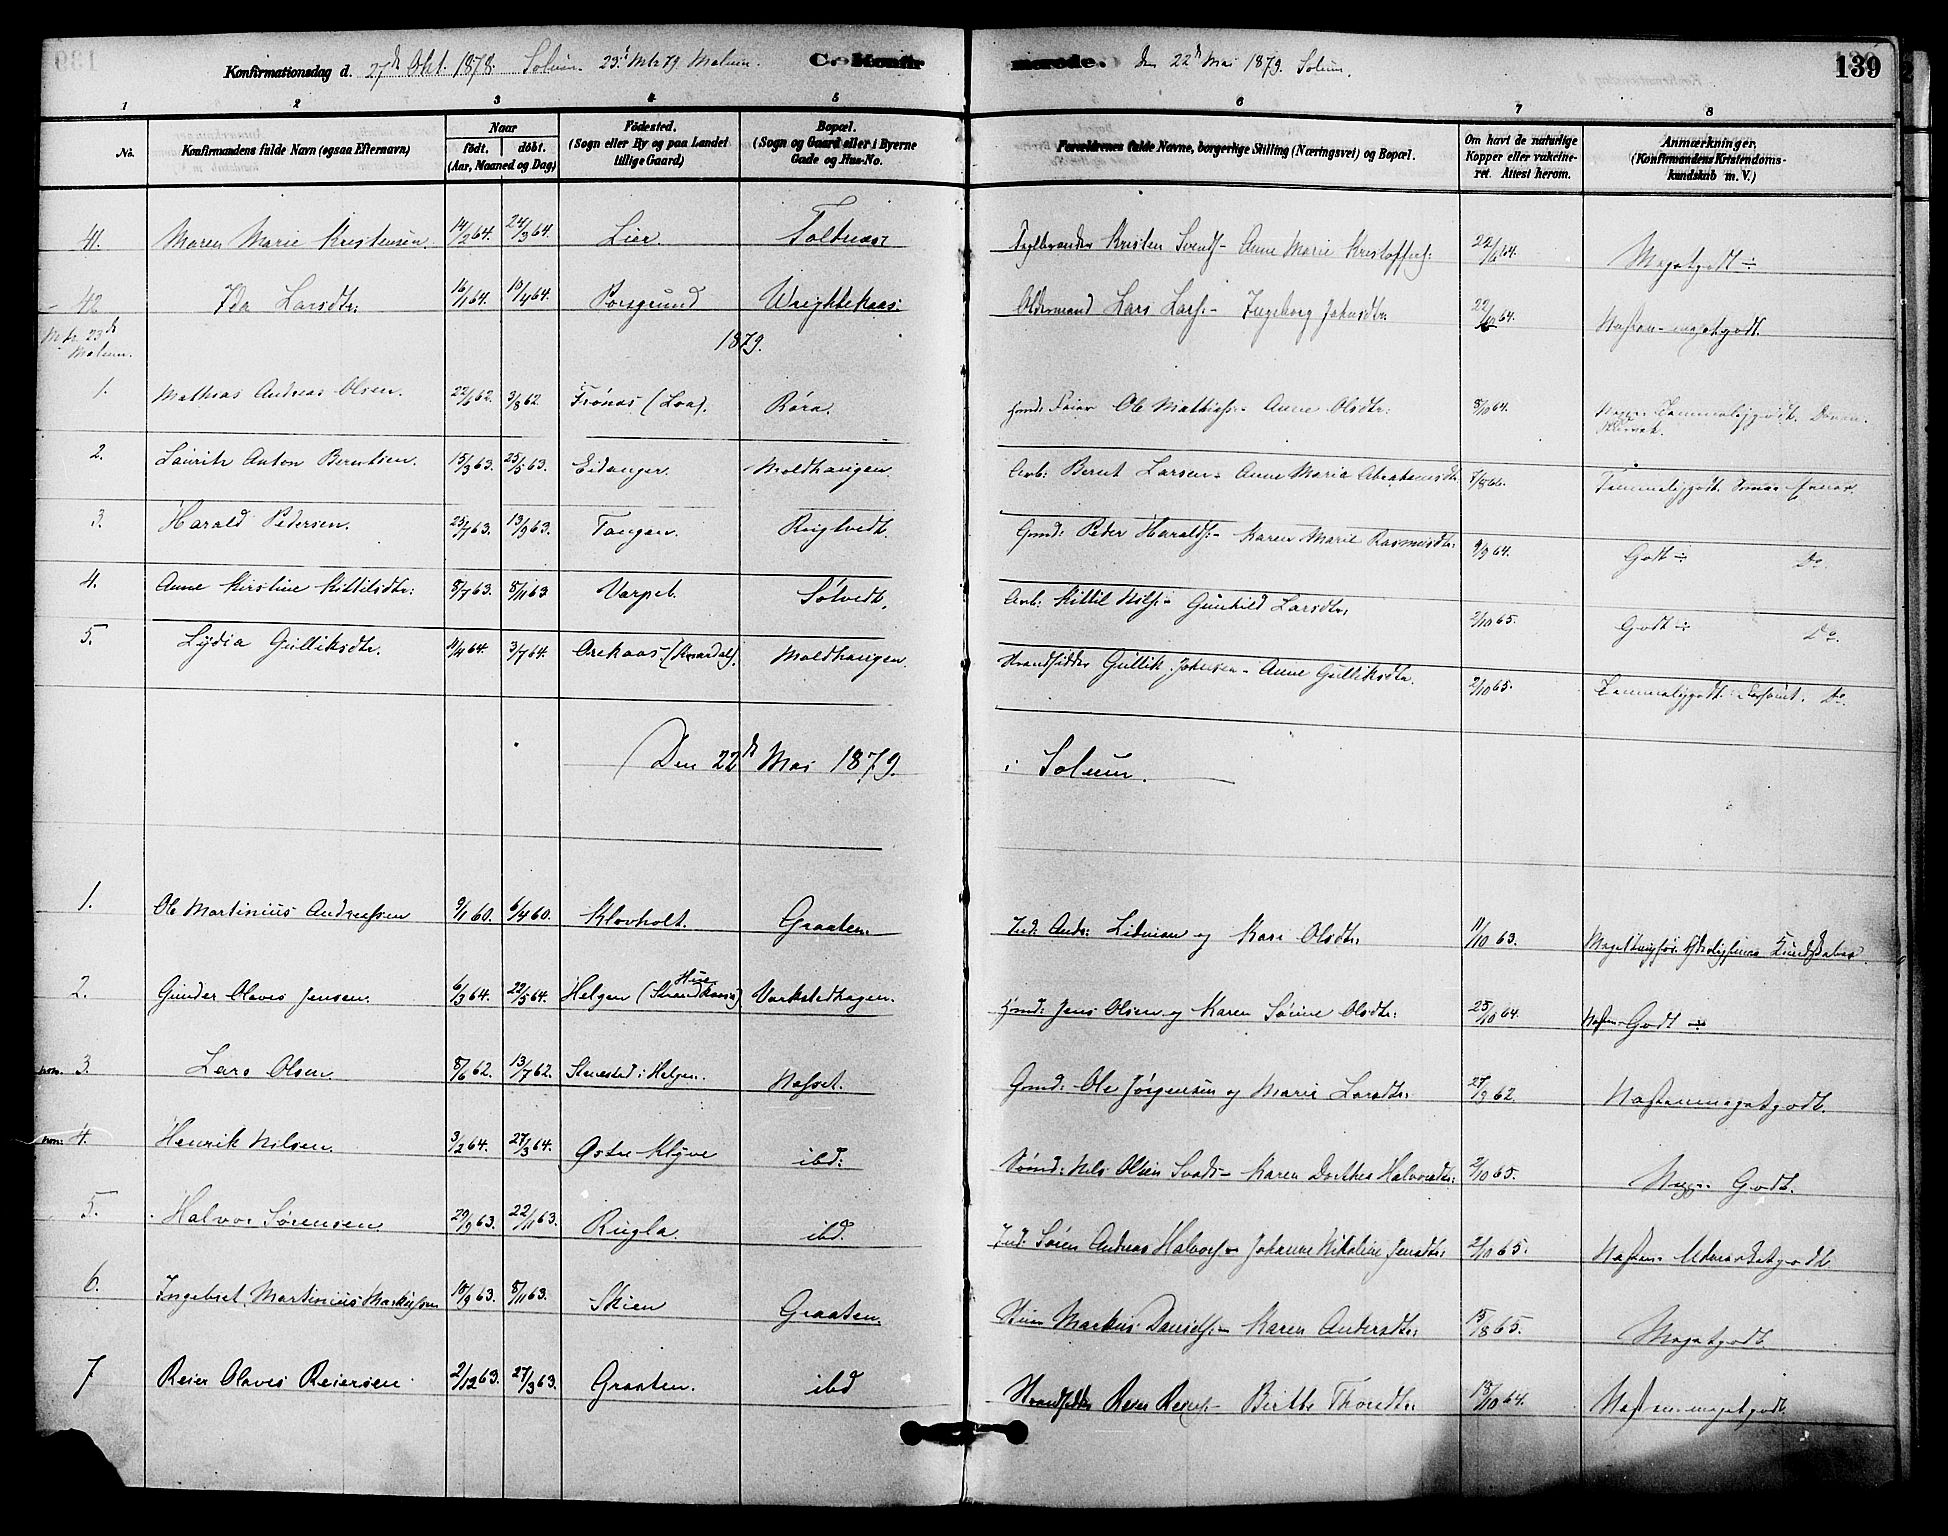 Konfirmationsdag d. 27de Okt. 1878. Solum. 23d Mts 79 Melum. Confir merede. Den 22de Mai 1879. Solum. 139
1 2 3 4 5 6 7 8
No. Konfirmandens fulde Navn (ogsaa Efternavn) Naar födt. döbt. (Aar, Maaned og Dag) Födested. (Sogn eller By og paa Landet tillige Gaard) Bopæl. (Sogn og Gaard eller i Byerne Gade og Hus-No. Forældrenes fulde Navne, borgerlige Stilling (Næringsvei) og Bopæl. Om havt de naturlige Kopper eller vakcineret. Attest herom. Anmærkninger, (Konfirmandens Kristendomskundskab m. V.)
41. Maren Marie Kristensen. 14/2 64. 24/3 64. Lier. Toltnæs Teglbrænder Kristen Svends.- Anne Marie Kristoffers: 22/6 64. Megetgodt
42. Ida Larsdtr: 16/1 64. 10/4 64. Porsgrund Wrightekaas. Oldermand Lars Lars.- Ingeborg Johnsdtr: 22/10 64. Næsten megetgodt.
Mts 23de Melum. 1879.
1. Mathias Andreas Olsen. 22/6 62. 3/8 62. Frónæs (Loa). Róra. Feier Ole Mathiess.- Anne Olsdtr: 8/10 64. Temmeliggodt.
2. Lauritz Anton Berntsen. 15/3 63. 25/5 63. Eidanger. Moldhaugen. Arb: Bernt Larsen - Anne Marie Abrahamsdtr 7/8 66. Temmeliggodt.
3. Harald Pedersen. 25/7 63. 13/9 63. Tangen. Rugtvedt. Gmd: Peder Haralds:- Karen Marie Rasmusdtr: 9/9 64. Godt Do
4. Anne Kirstine Kittilsdtr: 8/7 63. 8/11 63 Varpet. Solvedt. Arb: Kittil Nils:- Gunhild Larsdtr; 2/10 65. Godt Do.
5. Lydia Gulliksdtr. 11/4 64. 3/7 64. Arekaas (Kvardal). Moldhaugen. Strandsidder Gullik Johnsen - Anne Gulliksdtr. 2/10 65. Temmeliggodt. Do.
Den 22de Mai 1879. i Solum.
1. Ole Martinius Andreassen 9/1 60. 6/4 60. Klovholt. Graaten. Ind: Ands: Lidman og Kari Olsdtr; 11/10 63.
2. Gunder Olaves Jensen. 6/3 64. 22/5 64. Helgen (Strandkaasa) Værkstedhagen. Jens Olsen og Karen Sónne Olsdtr: 25/10 64. Næsten Godt
3. Lars Olsen. 8/6 62. 13/7 62. Stenstad i Helgen. Næset. Gmd: Ole Jörgensen og Marie Larsdtr: 27/9 62. Næstenmegetgodt.
4. Henrik Nilsen. 3/2 64. 27/3 64. Østre Klyve ibd: Nils Olsen - Karen Dorthea Halvorsdtr: 2/10 65. Godt.
5. Halvor Sørensen. 29/9 63. 22/11 63. Rugla ibd. Ind: Sóren Andreas Halvors - Johanne Nikoline Jensdtr; 2/10 65. Næsten Udmærketgodt
6. Ingebret Martinius Markussen 18/9 63. 8/11 63. Skien Graaten. Markus Daniels:- Karen Andersdtr; 15/8 65. Megetgodt
7 Reier Olaves Reiersen 2/12 63. 27/3 63. Graaten. ibd Strandsidder Reier Reiers.- Birthe Thorsdtr; 18/10 64. Næsten megetgodt.